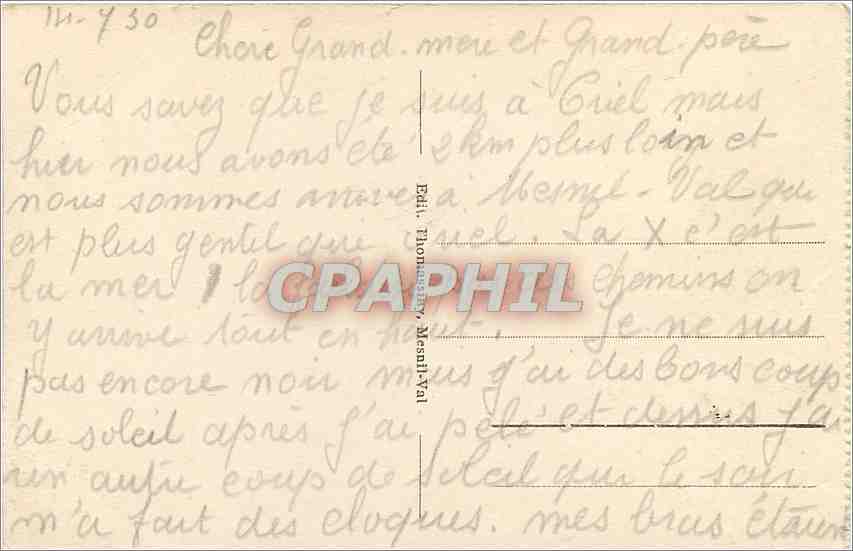 14-7 30
Chere Grand-mere et Grand-père
Vous savez que je suis à Criel mais
hier nous avons été 2 km plus loin et
nous sommes arrivé à Mesnil-Val qui
est plus gentil que Criel. La X c'est
la mer la chemins on
y arrive tout en haut. Je ne suis
pas encore noir mais j'ai des bons coup
de soleil après j'ai pelé et dessus j'ai
un autre coup de soleil qui le soir
m'a fait des cloques. mes bras étaien
Edit. Thomassay, Mesnil-Val
CPAPHIL